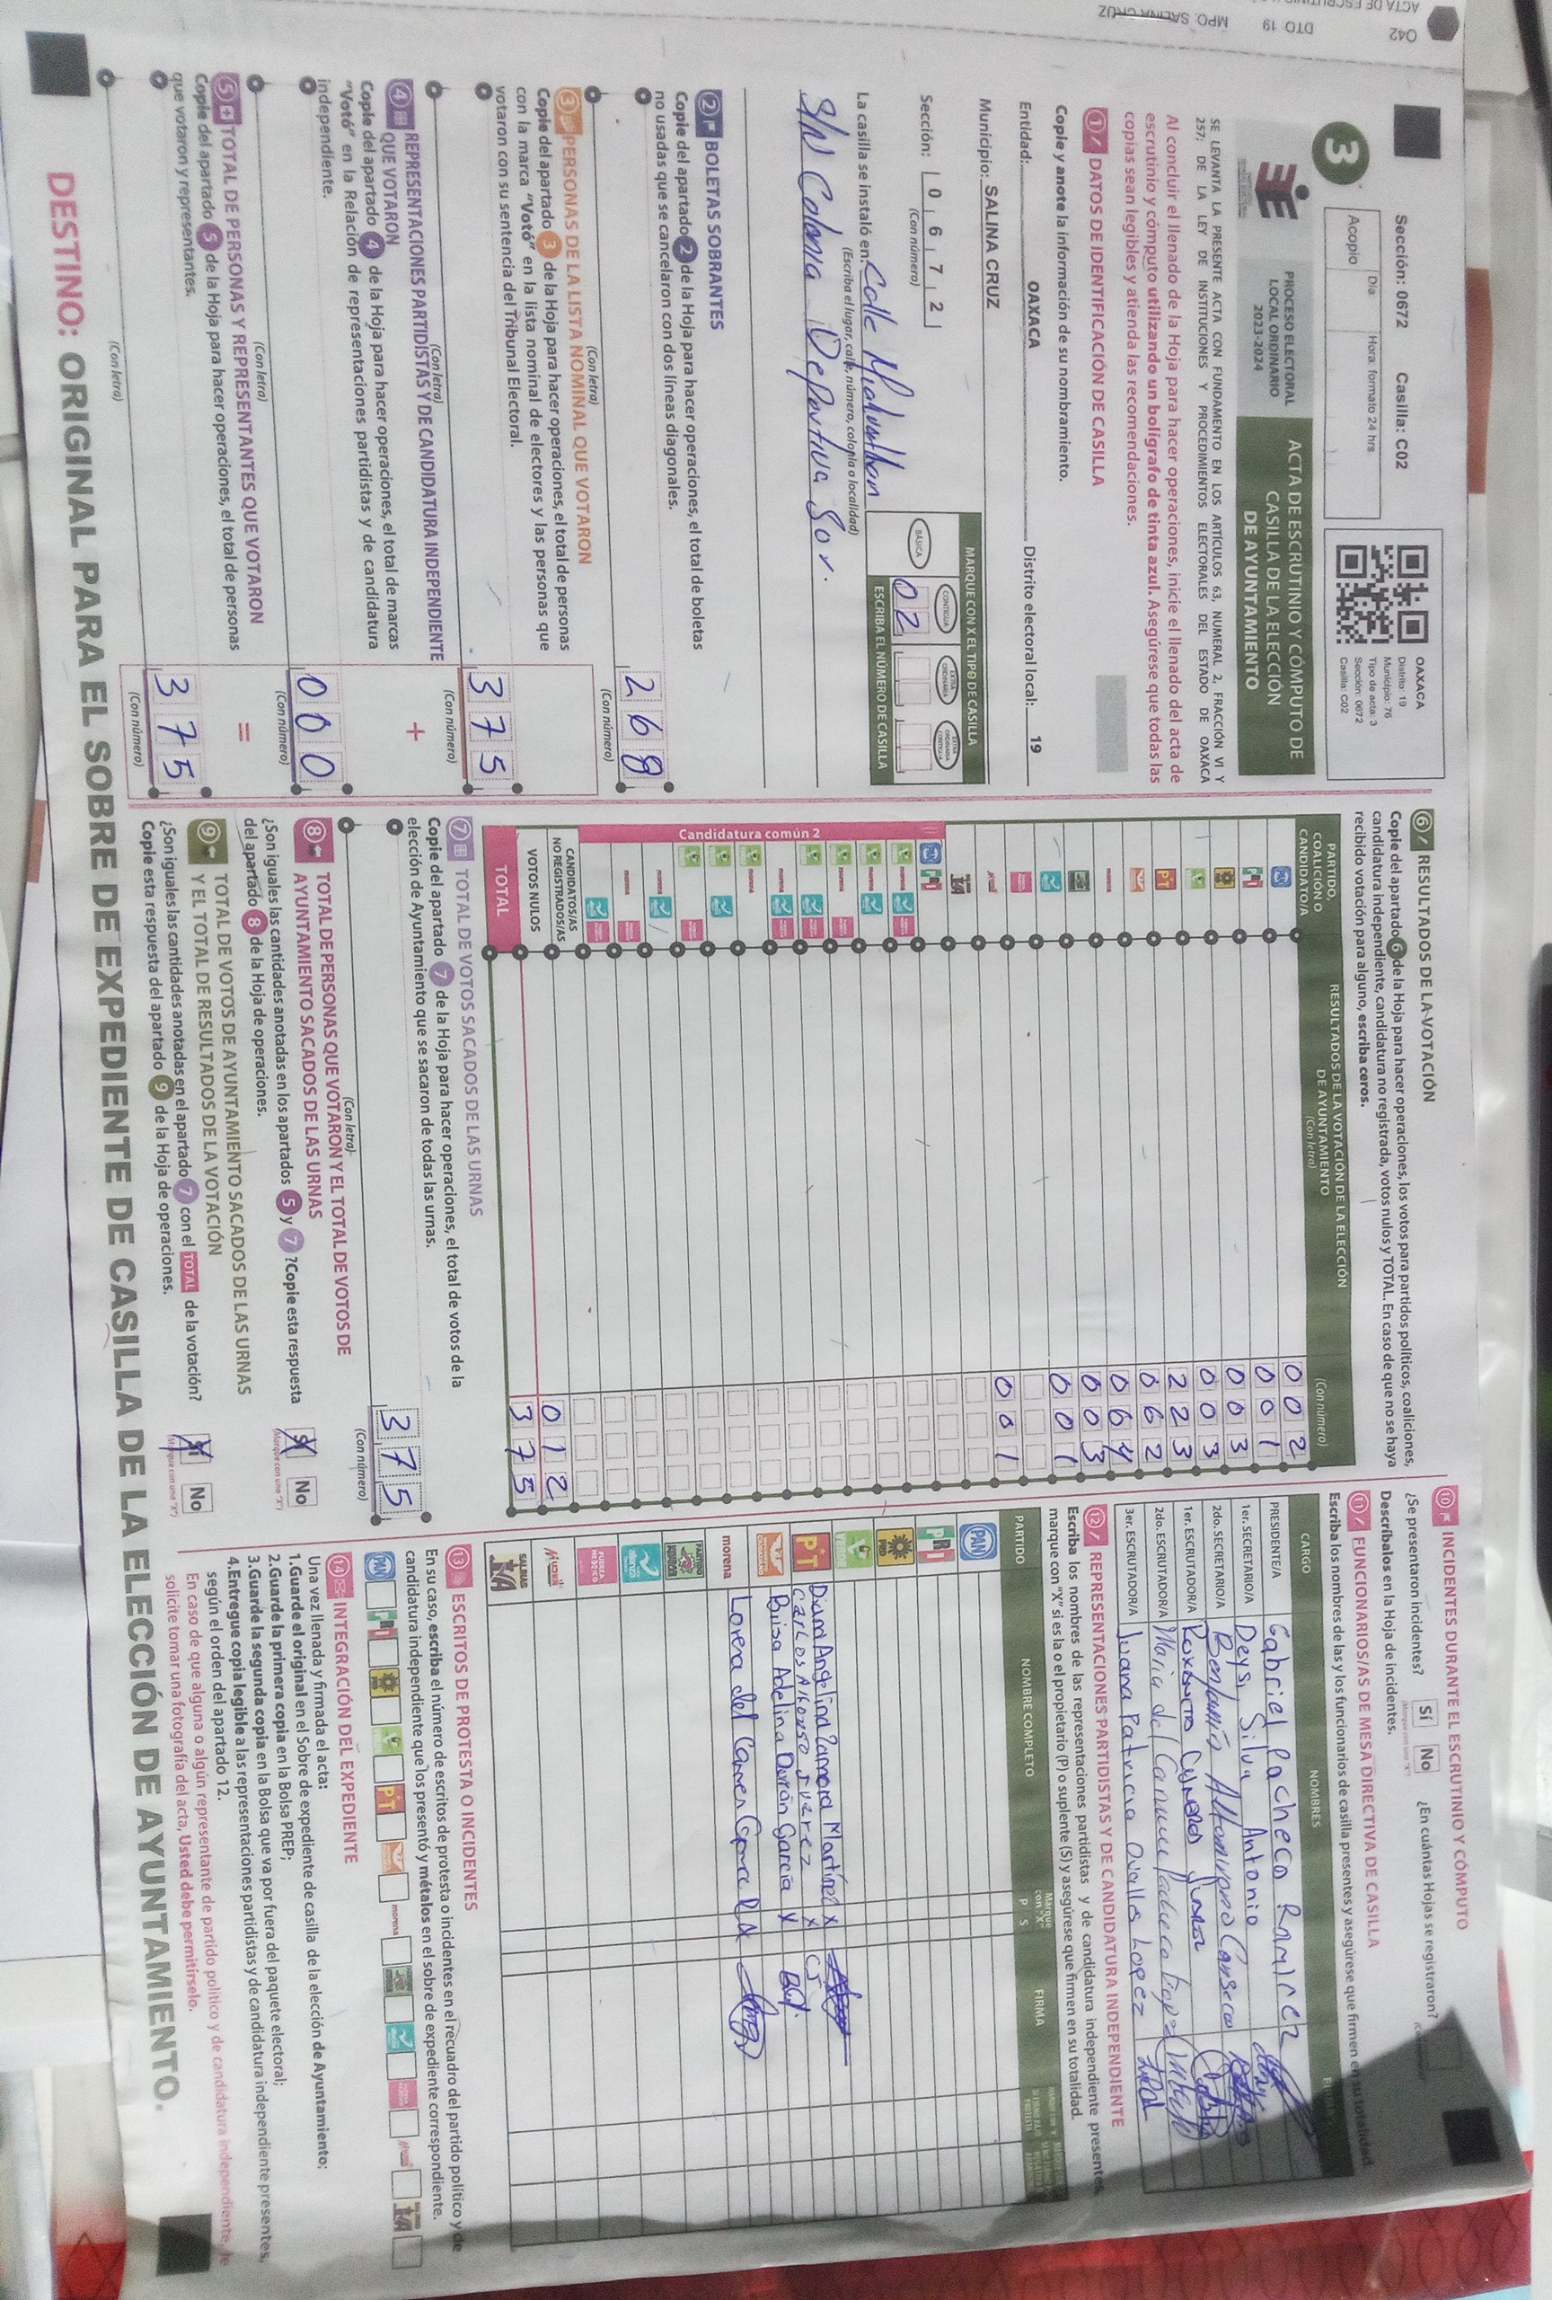 042
DTO 19
MPO. SALINA CRUZ
Sección: 0672 Casilla: C02
Acopio
Día
Hora: formato 24 hrs
OAXACA
Distrito: 19
Municipio: 76
Tipo de acta: 3
Sección: 0672
Casilla: C02
3
PROCESO ELECTORAL
LOCAL ORDINARIO
2023-2024
ACTA DE ESCRUTINIO Y CÓMPUTO DE
CASILLA DE LA ELECCIÓN
DE AYUNTAMIENTO
SE LEVANTA LA PRESENTE ACTA CON FUNDAMENTO EN LOS ARTÍCULOS 63, NUMERAL 2, FRACCIÓN VI Y
257; DE LA LEY DE INSTITUCIONES Y PROCEDIMIENTOS ELECTORALES DEL ESTADO DE OAXACA
Al concluir el llenado de la Hoja para hacer operaciones, inicie el llenado del acta de
escrutinio y cómputo utilizando un bolígrafo de tinta azul. Asegúrese que todas las
copias sean legibles y atienda las recomendaciones.
1 DATOS DE IDENTIFICACIÓN DE CASILLA
Copie y anote la información de su nombramiento.
Entidad: OAXACA Distrito electoral local: 19
Municipio: SALINA CRUZ
Sección: 0 6 7 2
(Con número)
MARQUE CON X EL TIPO DE CASILLA
BÁSICA CONTIGUA
02
ESCRIBA EL NÚMERO DE CASILLA
La casilla se instaló en: Calle Miahuatlan
(Escriba el lugar, calle, número, colonia o localidad)
S/N Colonia Deportiva Sor.
2 BOLETAS SOBRANTES
Copie del apartado 2 de la Hoja para hacer operaciones, el total de boletas
no usadas que se cancelaron con dos líneas diagonales.
2 6 8
(Con letra) (Con número)
3 PERSONAS DE LA LISTA NOMINAL QUE VOTARON
Copie del apartado 3 de la Hoja para hacer operaciones, el total de personas
con la marca "Votó" en la lista nominal de electores y las personas que
votaron con su sentencia del Tribunal Electoral.
3 7 5
(Con letra) (Con número)
4 REPRESENTACIONES PARTIDISTAS Y DE CANDIDATURA INDEPENDIENTE
QUE VOTARON
+
Copie del apartado 4 de la Hoja para hacer operaciones, el total de marcas
"Votó" en la Relación de representaciones partidistas y de candidatura
independiente.
0 0 0
(Con letra) (Con número)
5 TOTAL DE PERSONAS Y REPRESENTANTES QUE VOTARON
=
Copie del apartado 5 de la Hoja para hacer operaciones, el total de personas
que votaron y representantes.
3 7 5
(Con letra) (Con número)
6 RESULTADOS DE LA VOTACIÓN
Copie del apartado 6 de la Hoja para hacer operaciones, los votos para partidos políticos, coaliciones,
candidatura independiente, candidatura no registrada, votos nulos y TOTAL. En caso de que no se haya
recibido votación para alguno, escriba ceros.
PARTIDO,
COALICIÓN O
CANDIDATO/A
RESULTADOS DE LA VOTACIÓN DE LA ELECCIÓN
DE AYUNTAMIENTO
(Con letra) (Con número)
0 0 2
0 0 1
0 0 3
0 0 3
2 2 3
0 6 2
0 6 4
0 0 3
0 0 1
0 0 1
Candidatura común 2
CANDIDATOS/AS
NO REGISTRADOS/AS
VOTOS NULOS 0 1 2
TOTAL 3 7 5
7 TOTAL DE VOTOS SACADOS DE LAS URNAS
Copie del apartado 7 de la Hoja para hacer operaciones, el total de votos de la
elección de Ayuntamiento que se sacaron de todas las urnas.
3 7 5
(Con letra) (Con número)
8 TOTAL DE PERSONAS QUE VOTARON Y EL TOTAL DE VOTOS DE
AYUNTAMIENTO SACADOS DE LAS URNAS
¿Son iguales las cantidades anotadas en los apartados 5 y 7 ?Copie esta respuesta
del apartado 8 de la Hoja de operaciones.
Sí No
(Marque con una "X")
9 TOTAL DE VOTOS DE AYUNTAMIENTO SACADOS DE LAS URNAS
Y EL TOTAL DE RESULTADOS DE LA VOTACIÓN
¿Son iguales las cantidades anotadas en el apartado 7 con el TOTAL de la votación?
Copie esta respuesta del apartado 9 de la Hoja de operaciones.
Sí No
(Marque con una "X")
10 INCIDENTES DURANTE EL ESCRUTINIO Y CÓMPUTO
¿Se presentaron incidentes? Sí No ¿En cuántas Hojas se registraron?
(Marque con una "X")
Descríbalos en la Hoja de incidentes.
11 FUNCIONARIOS/AS DE MESA DIRECTIVA DE CASILLA
Escriba los nombres de las y los funcionarios de casilla presentes y asegúrese que firmen en su totalidad.
CARGO NOMBRES
PRESIDENTE/A Gabriel Pacheco Ramirez
1er. SECRETARIO/A Deysi Silva Antonio
2do. SECRETARIO/A Benjamin Altamirano Canseco
1er. ESCRUTADOR/A
2do. ESCRUTADOR/A Maria del Carmen
3er. ESCRUTADOR/A Juana Patricia Ovalles Lopez
12 REPRESENTACIONES PARTIDISTAS Y DE CANDIDATURA INDEPENDIENTE
Escriba los nombres de las representaciones partidistas y de candidatura independiente presentes,
marque con "X" si es la o el propietario (P) o suplente (S) y asegúrese que firmen en su totalidad.
PARTIDO NOMBRE COMPLETO Marque con "X" P S FIRMA
PAN
PRI
PRD
VERDE
PT Diana Angelina Zamora Martínez X
Carlos Alfonso Juarez X CJ
Brisa Adelina Durán García X
morena Lorena del Carmen X
FUERZA MÉXICO
MUJER
13 ESCRITOS DE PROTESTA O INCIDENTES
En su caso, escriba el número de escritos de protesta o incidentes en el recuadro del partido político y de
candidatura independiente que los presentó y métalos en el sobre de expediente correspondiente.
PAN PRI PT morena
14 INTEGRACIÓN DEL EXPEDIENTE
Una vez llenada y firmada el acta:
1.Guarde el original en el Sobre de expediente de casilla de la elección de Ayuntamiento;
2.Guarde la primera copia en la Bolsa PREP;
3.Guarde la segunda copia en la Bolsa que va por fuera del paquete electoral;
4.Entregue copia legible a las representaciones partidistas y de candidatura independiente presentes,
según el orden del apartado 12.
En caso de que alguna o algún representante de partido político y de candidatura independiente, le
solicite tomar una fotografía del acta, Usted debe permitírselo.
DESTINO: ORIGINAL PARA EL SOBRE DE EXPEDIENTE DE CASILLA DE LA ELECCIÓN DE AYUNTAMIENTO.